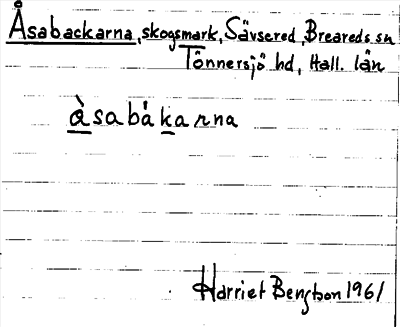 Åsabackarna, skogsmark, Sävsered, Breareds sn
Tönnersjö hd, Hall. län
å̀sabåkarna
Harriet Bengtson 1961